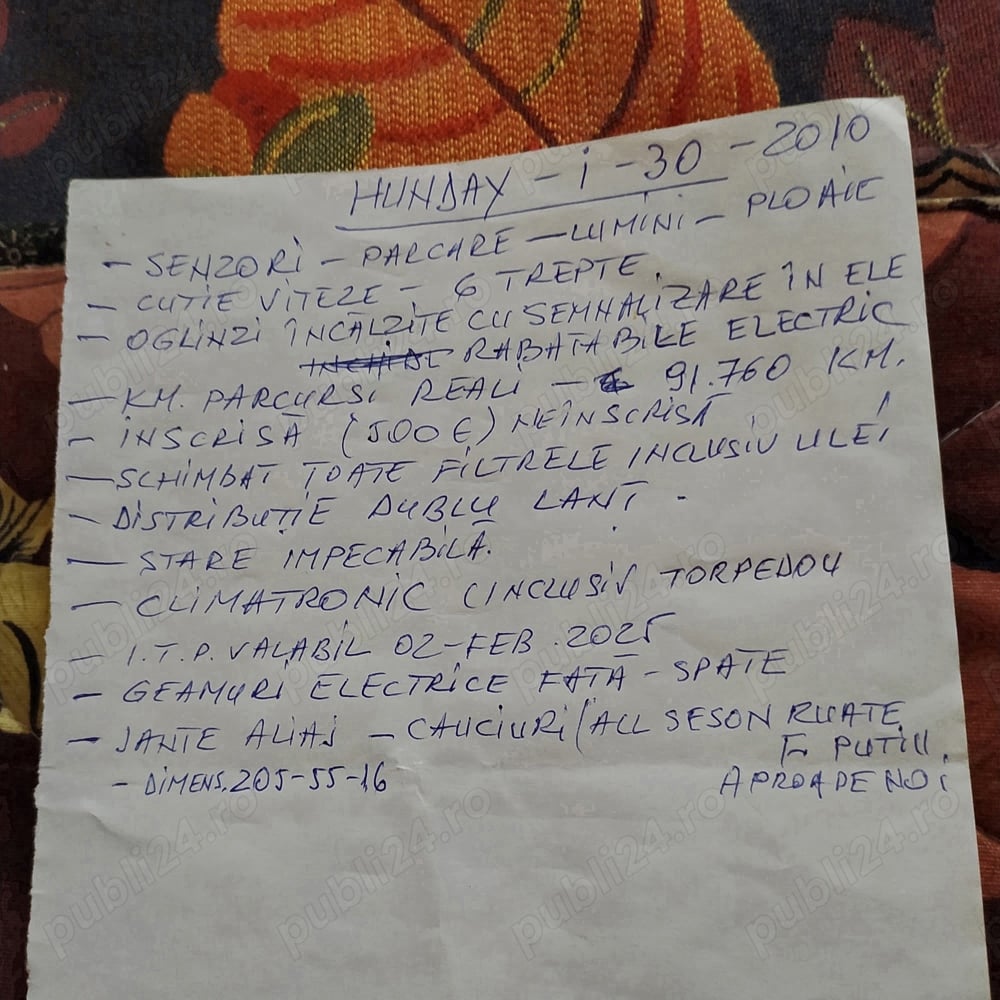 HUNDAY - i - 30 - 2010
- SENZORI - PARCARE - LUMINI - PLOAIE
- CUTIE VITEZE - 6 TREPTE.
- OGLINZI ÎNCĂLZITE CU SEMNALIZARE ÎN ELE
RABATABILE ELECTRIC
- KM. PARCURSI REALI - 91.760 KM.
- INSCRISĂ (500 €) NEÎNSCRISĂ !
- SCHIMBAT TOATE FILTRELE INCLUSIV ULEI
- DISTRIBUȚIE DUBLU LANT -
- STARE IMPECABILĂ.
- CLIMATRONIC (INCLUSIV TORPEDOU
- I.T.P. VALABIL 02-FEB.2025
- GEAMURI ELECTRICE FATĂ - SPATE
- JANTE ALIAJ - CAUCIURI (ALL SESON RUATE
F. PUTIN.
- DIMENS. 205-55-16 APROAPE NOI
publi24.ro